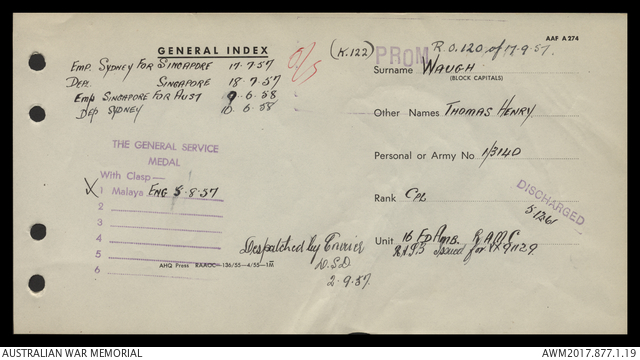 AAF A274
GENERAL INDEX
(K.122)
PROM
R.O.120 of 17-9-57.
Emp. SYDNEY FOR SINGAPORE 17-7-57
O/S
Surname WAUGH
(BLOCK CAPITALS)
SINGAPORE 18-7-57
Emp SINGAPORE FOR AUST 9-6-58
Dep SYDNEY 10-6-58
Other Names THOMAS HENRY
THE GENERAL SERVICE
MEDAL
Personal or Army No. 1/3140
With Clasp—
1 Malaya ENG 5-8-57
2
3
4
5
6
Rank CPL
DISCHARGED
Despatched by
2-9-57
Unit 16 FD AMB. R.A.M.C
Issued for
AHQ Press RAAOC—136/55—4/55—1M
AUSTRALIAN WAR MEMORIAL
AWM2017.877.1.19